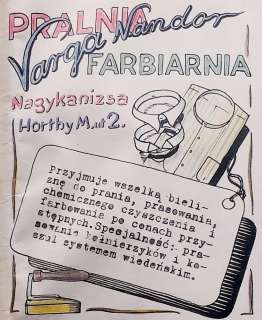 PRALNIA
Varga Nandor
FARBIARNIA
Nagykanizsa
Horthy M. ut 2.
Przyjmuje wszelką bieli-
znę do prania, prasowania,
chemicznego czyszczenia i
farbowania po cenach przy-
stępnych. Specjalność: pra-
sowanie kołnierzyków i ko-
szul systemem wiedeńskim.